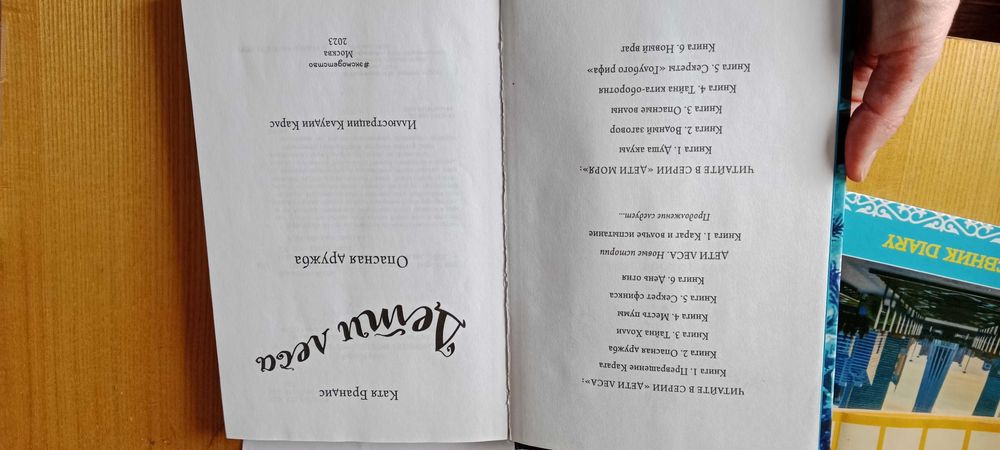 ЕВНИК DIARY
ЧИТАЙТЕ В СЕРИИ «ДЕТИ ЛЕСА»:
Книга 1. Превращение Карага
Книга 2. Опасная дружба
Книга 3. Тайна Холли
Книга 4. Месть пумы
Книга 5. Секрет сфинкса
Книга 6. День огня
ДЕТИ ЛЕСА. Новые истории
Книга 1. Караг и волчье испытание
Продолжение следует...
ЧИТАЙТЕ В СЕРИИ «ДЕТИ МОРЯ»:
Книга 1. Душа акулы
Книга 2. Водный заговор
Книга 3. Опасные волны
Книга 4. Тайна кита-оборотня
Книга 5. Секреты «Голубого рифа»
Книга 6. Новый враг
Катя Брандис
Дети леса
Опасная дружба
Иллюстрации Клаудии Карлс
#эксмодетство
Москва
2023